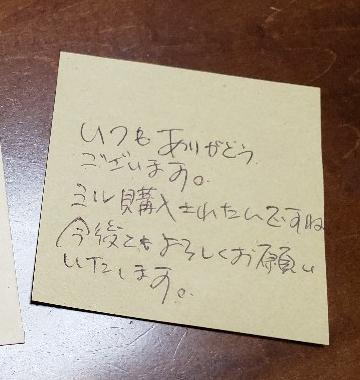 いつもありがとう
ございます。
ミル購入されたんですね
今後ともよろしくお願い
いたします。